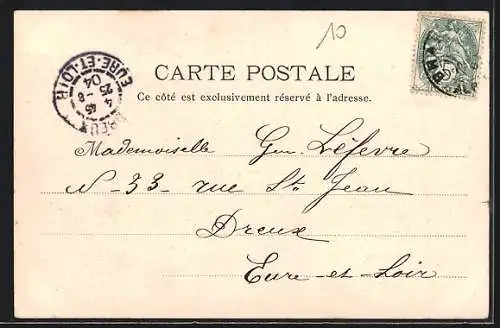 10
CARTE POSTALE
Ce côté est exclusivement réservé à l'adresse.
DREUX
4 45
25 - 8
04
EURE-ET-LOIR
Mademoiselle Lefevre
N - 33 - rue St Jean
Dreux
Eure - et - Loir